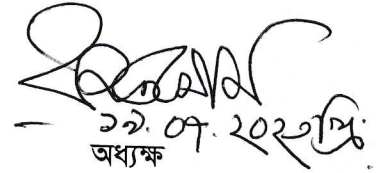 ১৯.০৭.২০২৩খ্রি.
অধ্যক্ষ